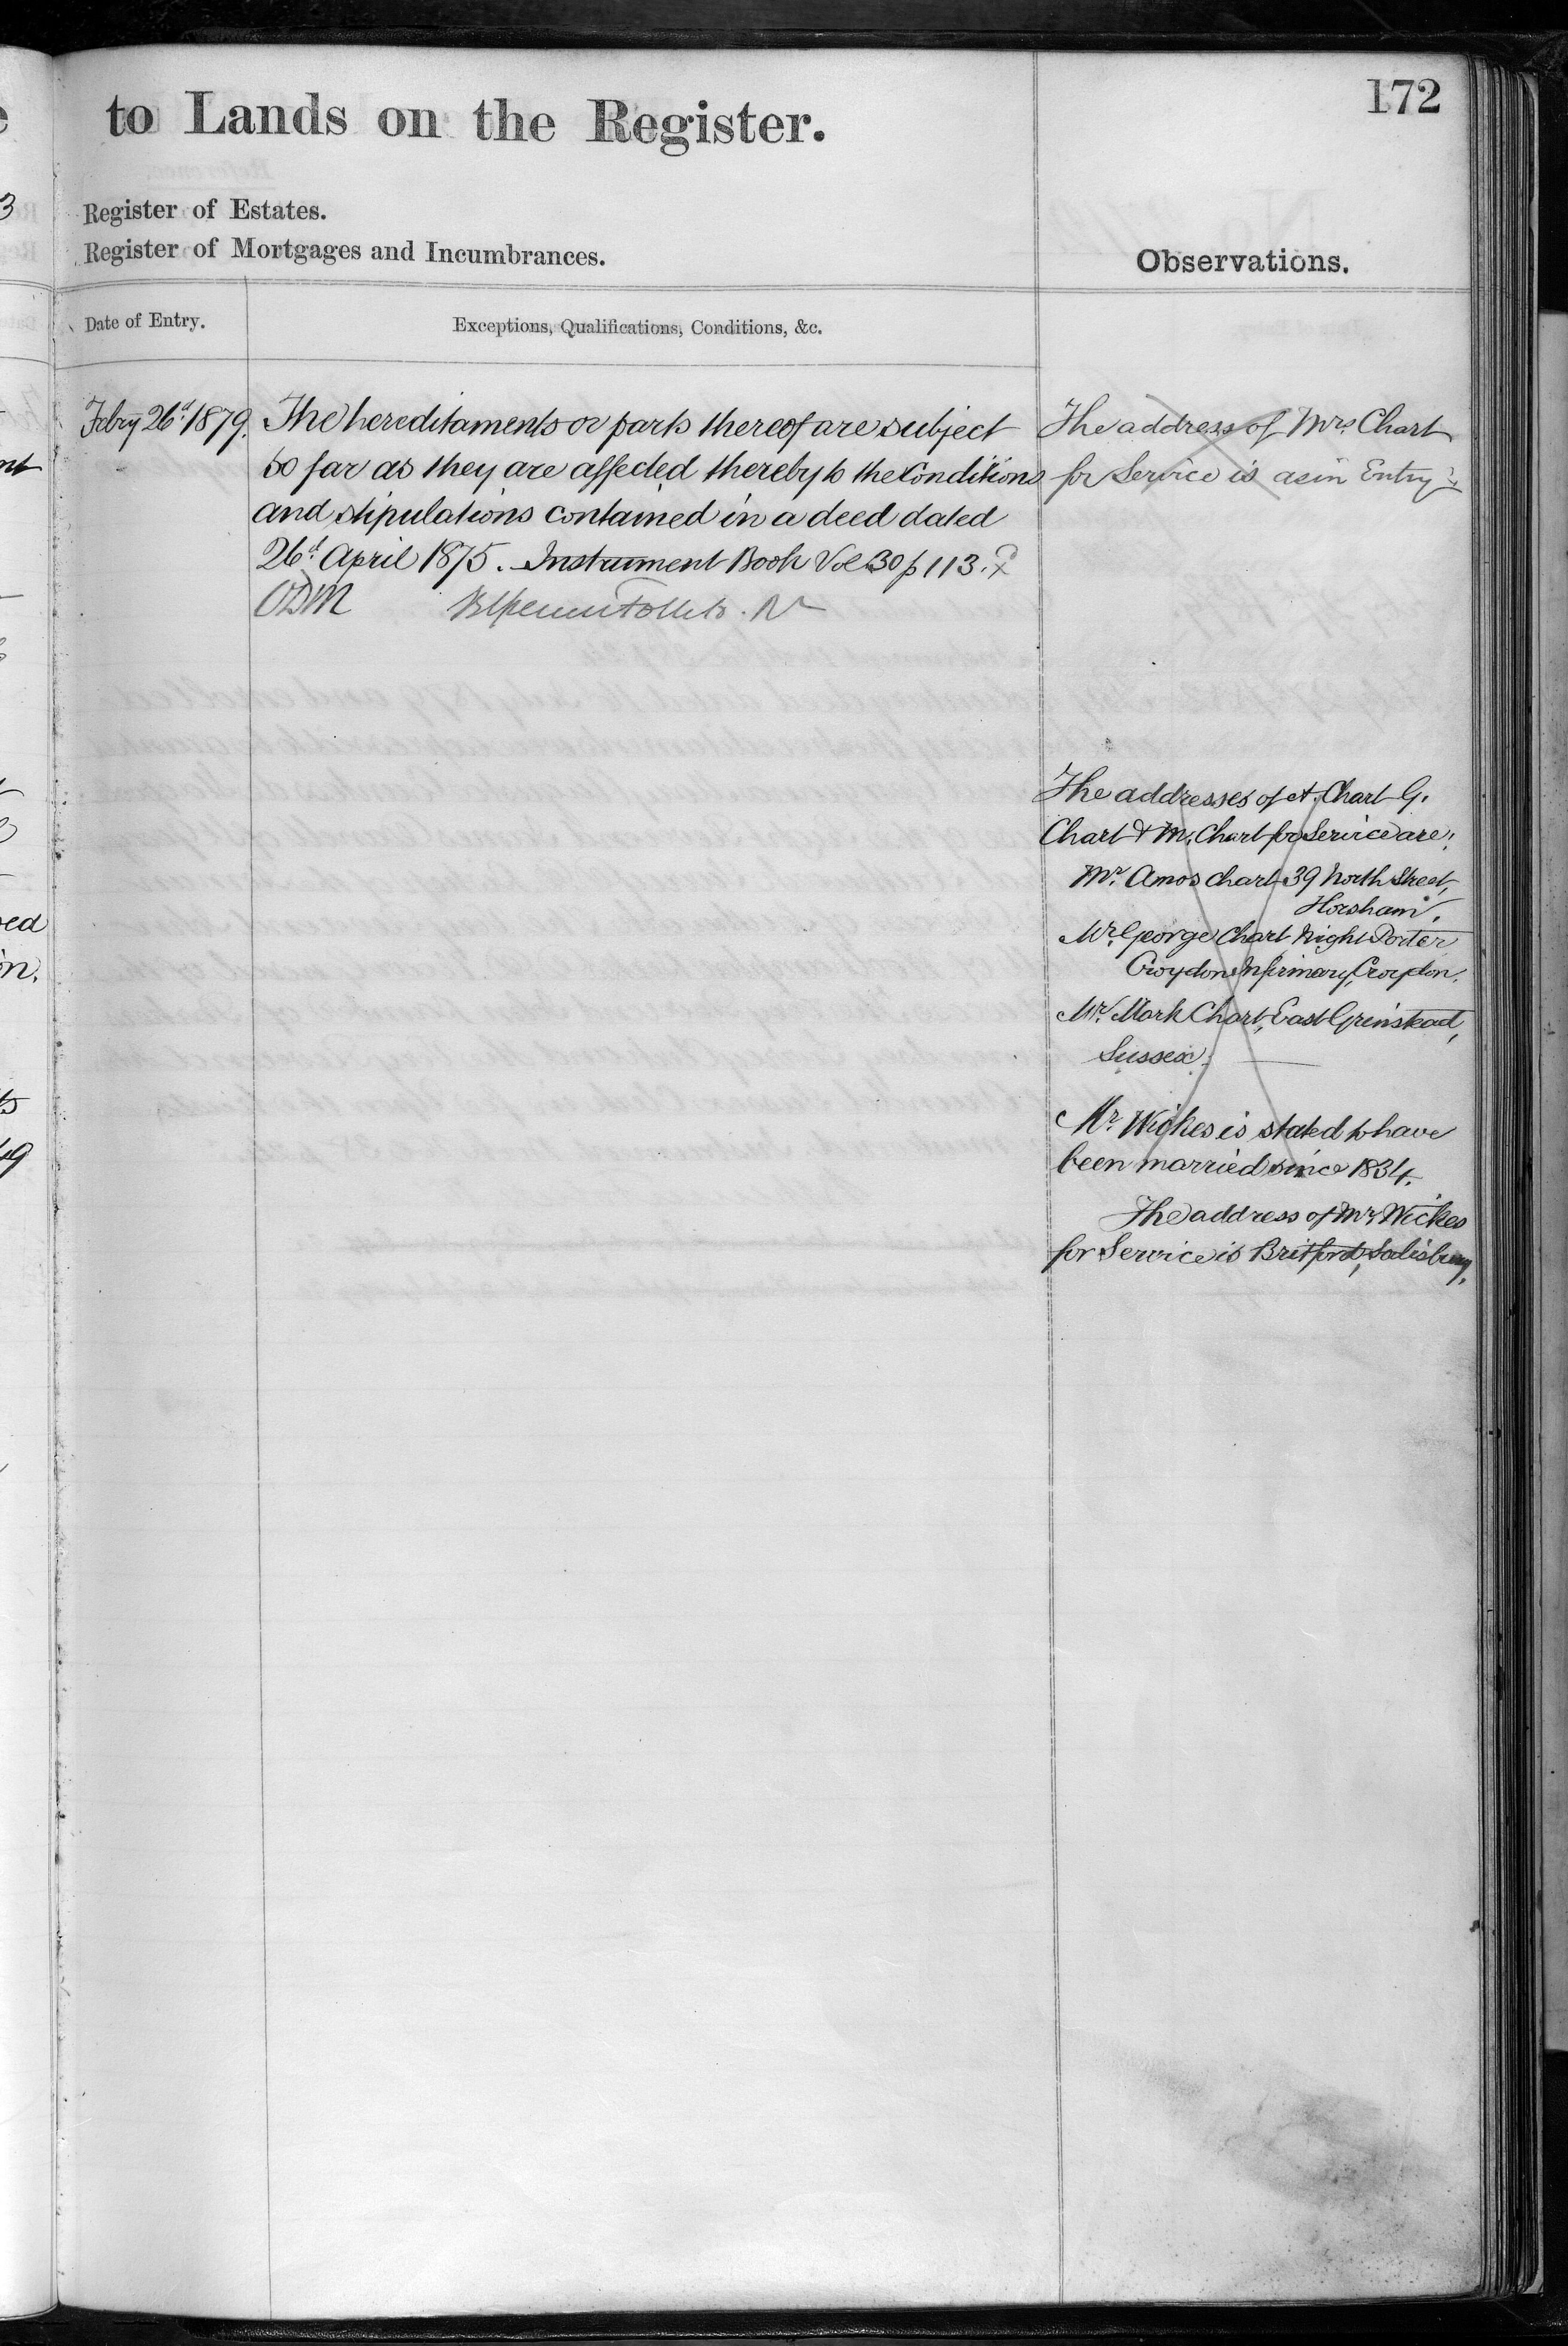 172
to Lands on the Register.
Register of Estates.
Register of Mortgages and Incumbrances.
Observations.
Date of Entry.
Exceptions, Qualifications, Conditions, &c.
Febry 26th 1879.
The hereditaments or parts thereof are subject
so far as they are affected thereby to the Conditions
and stipulations contained in a deed dated
26th April 1875. Instrument Book Vol 30 p 113.
ODM
The address of Mrs Chart
for Service is as in Entry
The addresses of A. Chart G.
Chart & M. Chart for Service are:
Mr. Amos Chart 39 North Street,
Horsham.
Mr. George Chart Night Porter
Croydon Infirmary, Croydon.
Mr. Mark Chart, East Grinstead,
Sussex.
Mr Wickes is stated to have
been married since 1834.
The address of Mr Wickes
for Service is Britford, Salisbury.
3
nt
ed
on.
ts
49